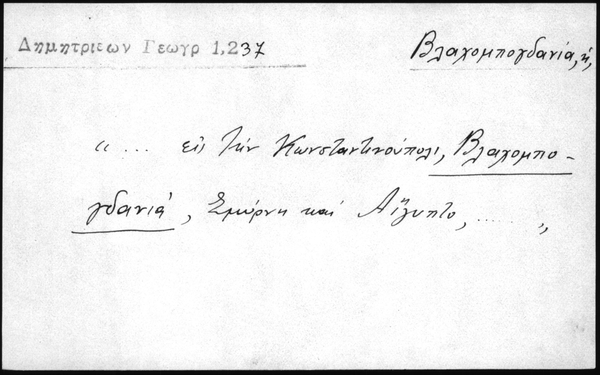 Δημητριεων Γεωγρ 1,237
Βλαχομπογδανία, ἡ,
“ ... εἰς τὴν Κωνσταντινούπολι, Βλαχομπο-
γδανιά, Σμύρνη καὶ Αἴγυπτο, ..... „